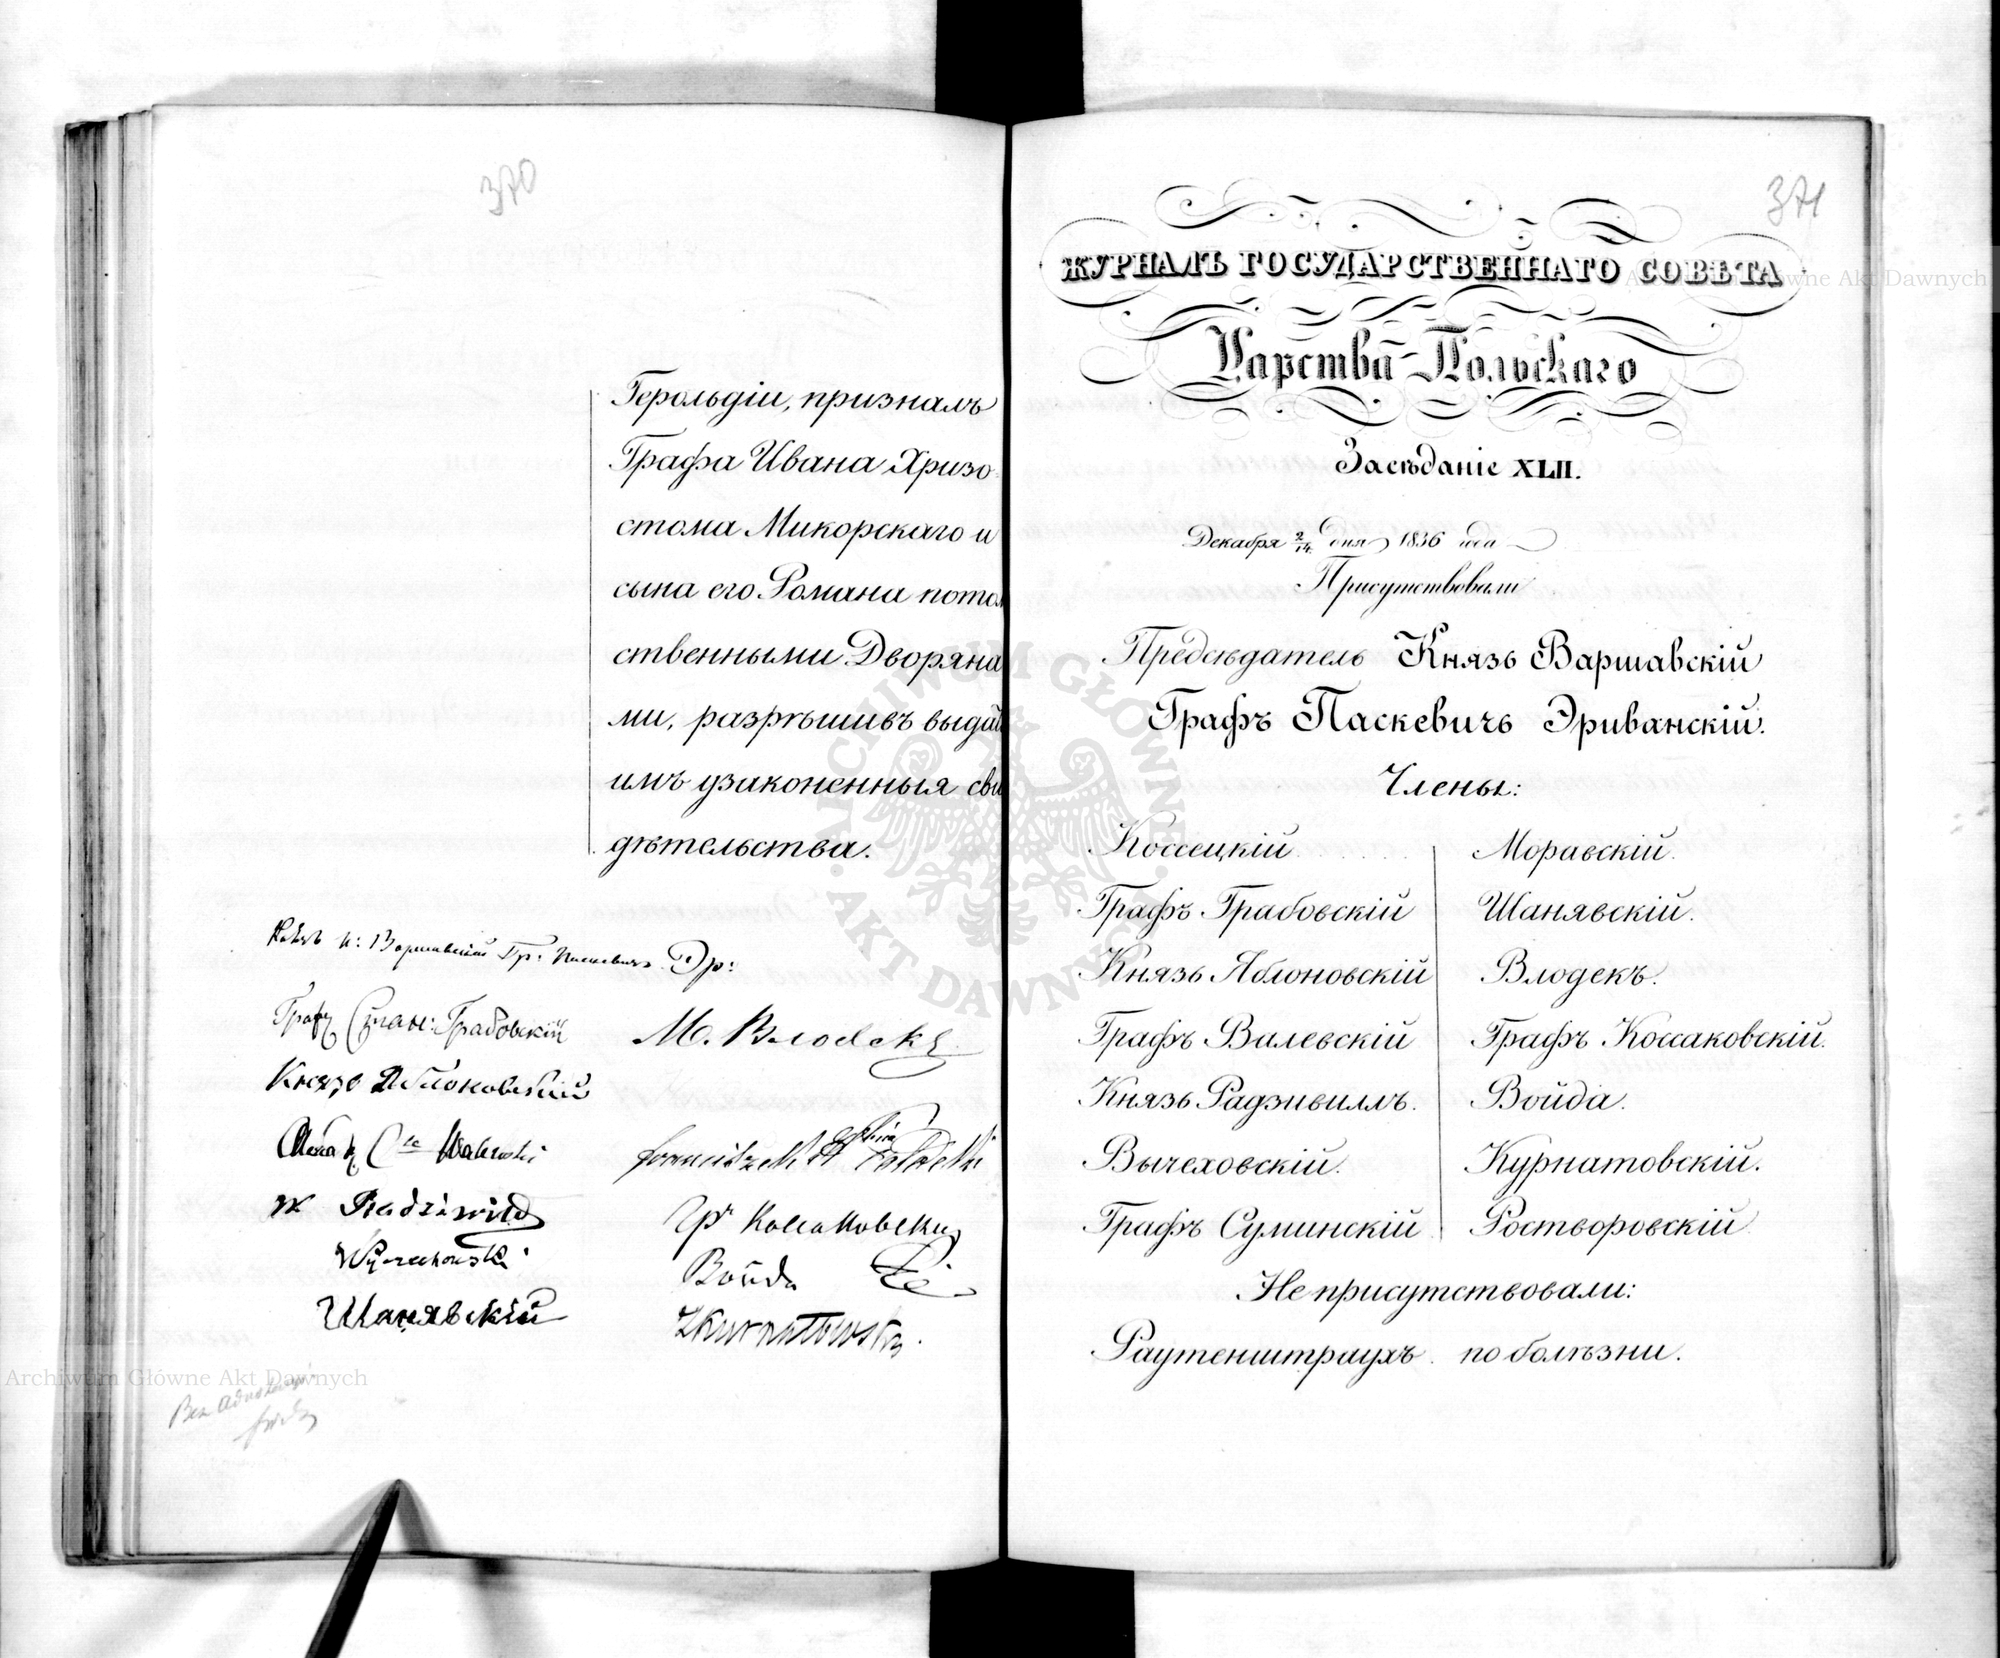 370
Герольдіи, призналъ
Графа Ивана Хризо-
стома Микорскаго и
сына его Романа потом
ственными Дворяна
ми, разрѣшивъ выдать
имъ узаконенныя сви
дѣтельства.
к: Варшавскій Гр: Паскевичъ Эр:
Графъ Стан: Грабовскій
М. Влодекъ
Князь Яблоновскій
Walewski
Franciszek
X Radziwiłł
Гр Коссаковскій
Wyczechowski
Войда
Шанявскій
Kurnatowski.
371
ЖУРНАЛЪ ГОСУДАРСТВЕННАГО СОВѢТА
Царства Польскаго
Засѣданіе XLII.
Декабря 2/14 дня 1836 года
Присутствовали
Предсѣдатель Князь Варшавскій
Графъ Паскевичь Эриванскій.
Члены:
Коссецкій
Графъ Грабовскій
Князь Яблоновскій
Графъ Валевскій
Князь Радзивиллъ.
Вычеховскій.
Графъ Суминскій
Моравскій.
Шанявскій.
Влодекъ.
Графъ Коссаковскій.
Войда.
Курнатовскій.
Ростворовскій
Не присутствовали:
Раутенштраухъ по болѣзни.
Archiwum Główne Akt Dawnych
ARCHIWUM GŁÓWNE AKT DAWNYCH
Archiwum Główne Akt Dawnych